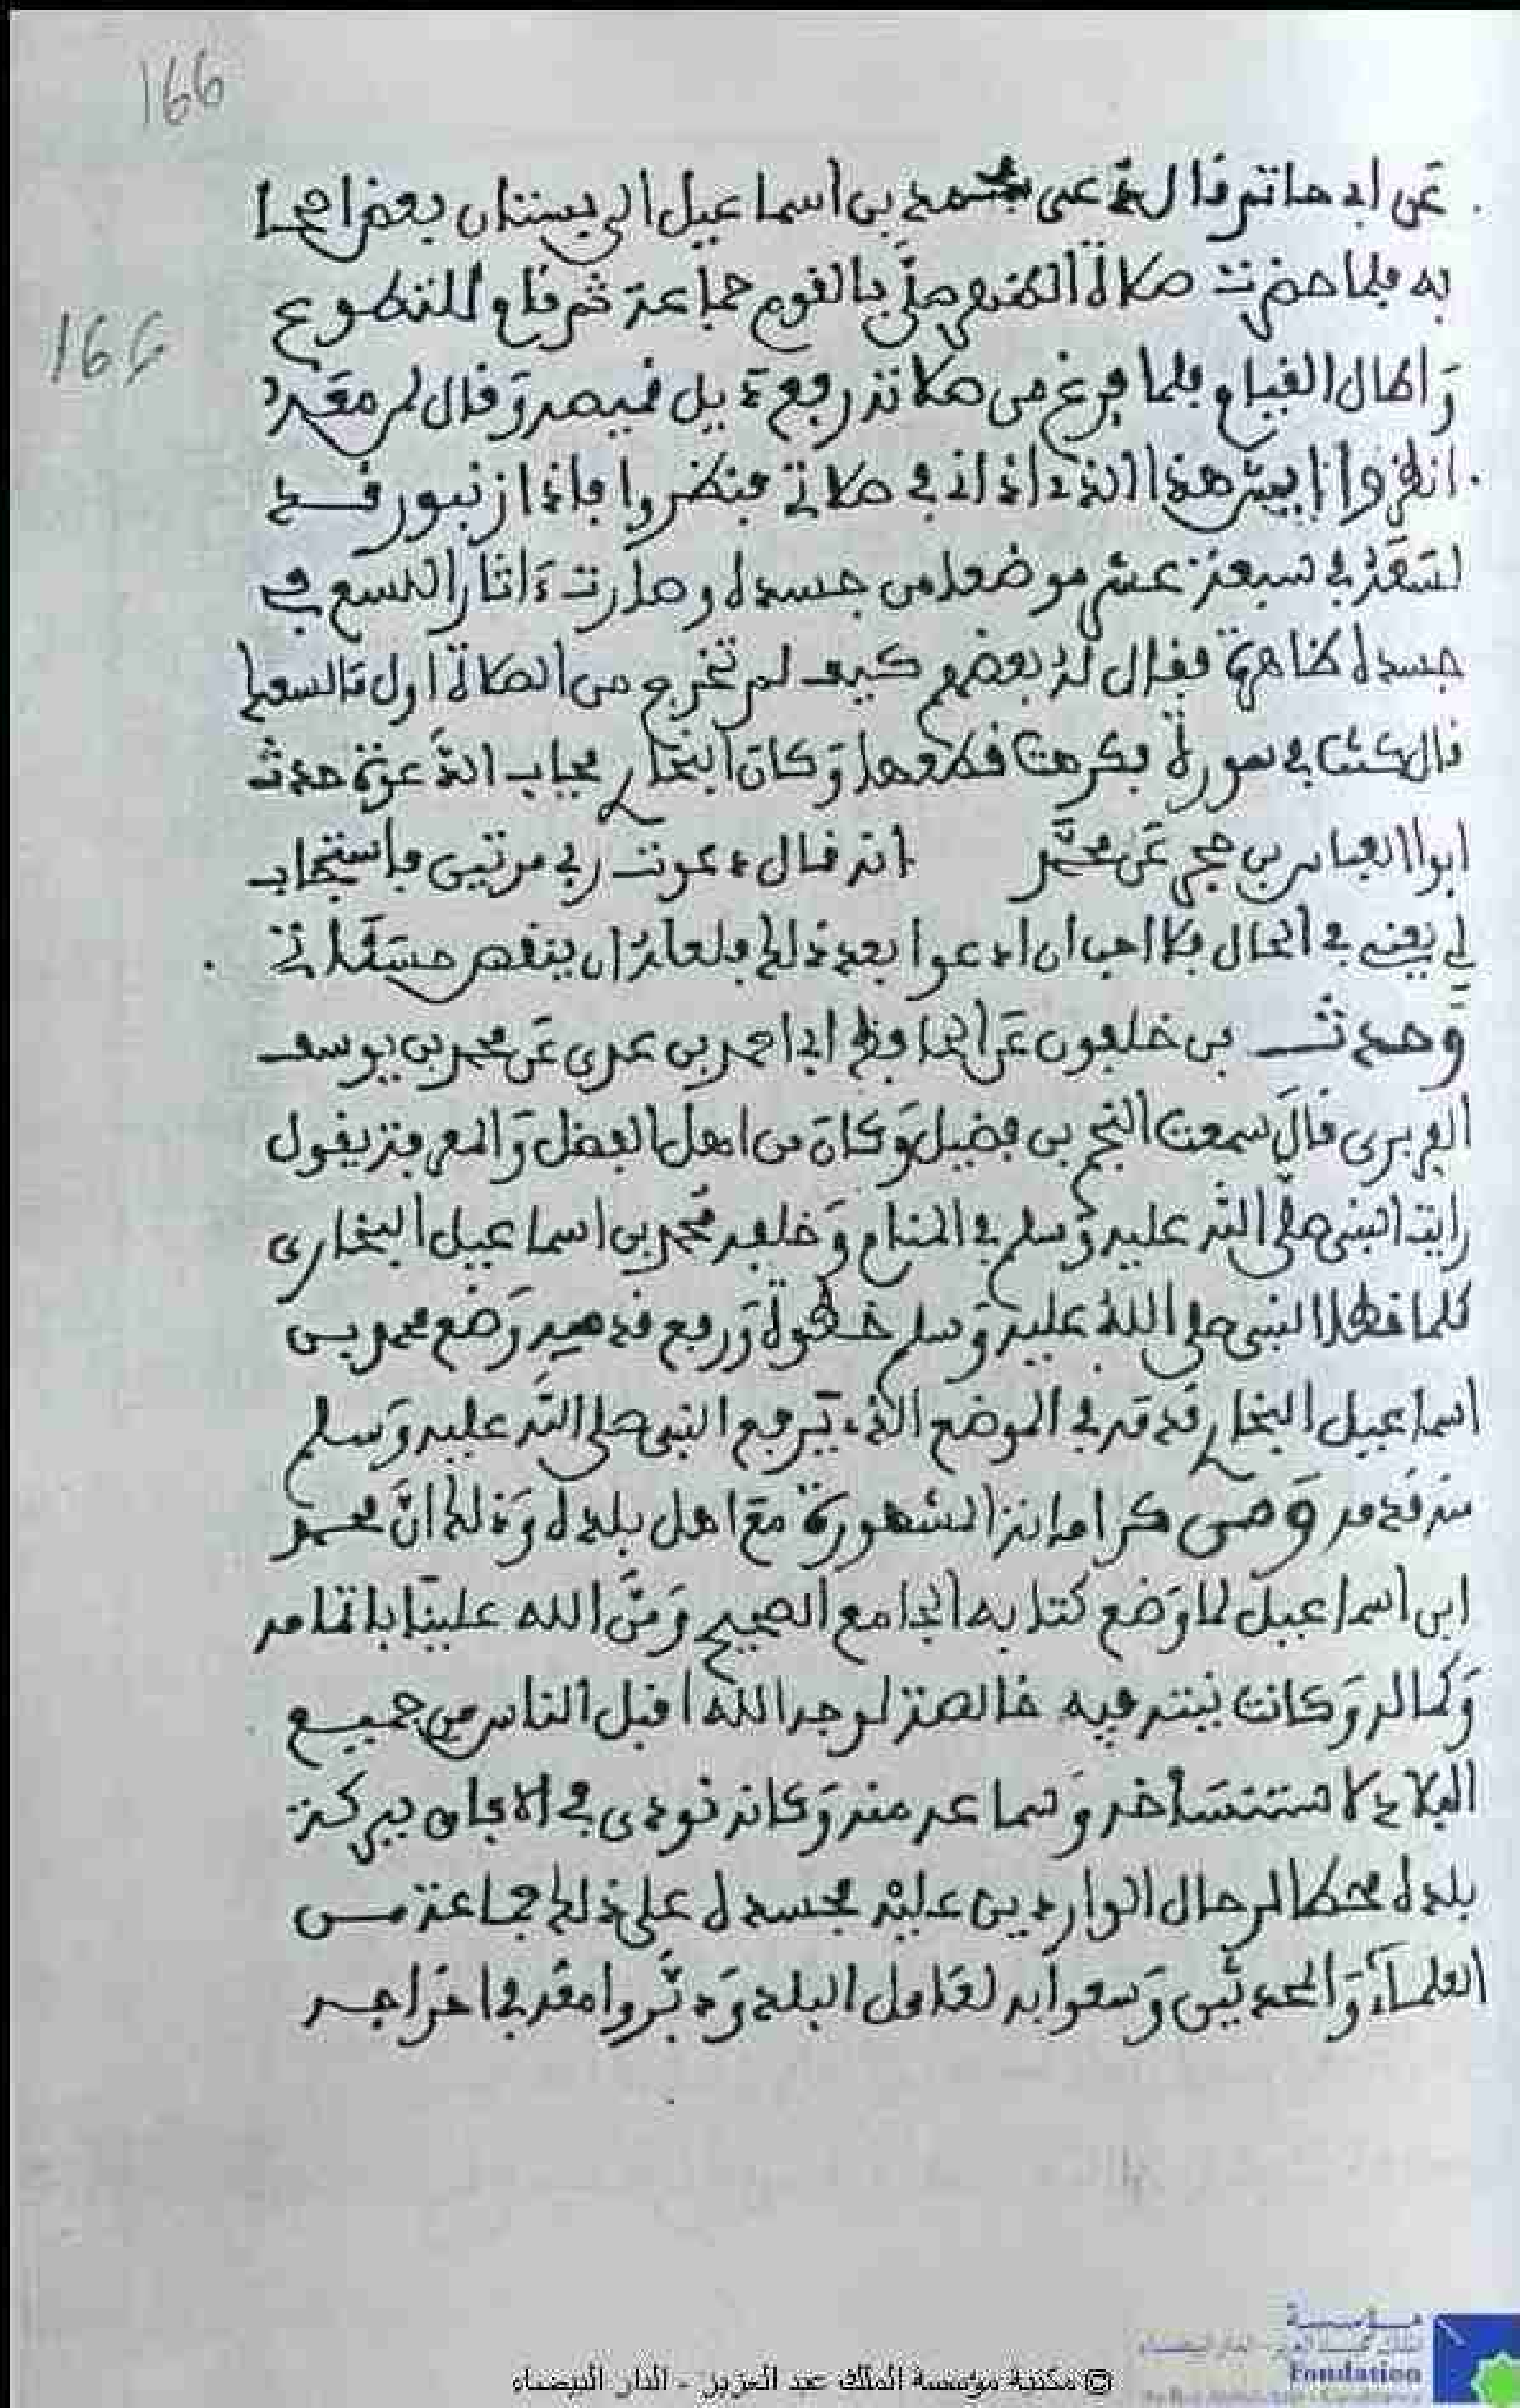 166
عن ابى حاتم قال دعى محمد بن اسماعيل الى بستان بعض اصحا
به فلما حضرت صلاة الظهر صلى بالقوم جماعة ثم قام للتطوع
166
واطال القيام فلما فرغ من صلاته رفع ذيل قميصه وقال لمن معه
انظروا ايش هذا الذى اذانى فى صلاتى فنظروا فاذا زنبور قد
لسعه فى سبعة عشر موضعا من جسده وصارت ءاثار اللسع فى
جسده ظاهرة فقال له بعضهم كيف لم تخرج من الصلاة اول ما لسعها
قال كنت فى سورة فكرهت قطعها وكان البخارى مجاب الدعوة حدث
ابوا العباس بن حجر عن محمد انه قال دعوت ربى مرتين فاستجاب
لى يعنى فى الحال فلا احب ان ادعوا بعد ذلك فلعله ان ينقص حسناتى
وحدث بن خلفون عن الحافظ ابا احمد بن عدى عن محمد بن يوسف
الفربرى قال سمعت النجم بن فضيل وكان من اهل الفضل والمعرفة يقول
رايت النبى صلى الله عليه وسلم فى المنام وخلفه محمد بن اسماعيل البخارى
كلما خطا النبى صلى الله عليه وسلم خطوة ورفع قدميه وضع محمد بن
اسماعيل البخارى قدمه فى الموضع الذى يرفع النبى صلى الله عليه وسلم
منه قدمه ومن كراماته الشهورة مع اهل بلده وذلك ان محمد
ابن اسماعيل لما وضع كتابه الجامع الصحيح ومن الله علينا باتمامه
وكماله وكانت نيته فيه خالصة لوجه الله اقبل الناس من جميع
البلاد لاستنساخه وسماعه منه وكانه نودى فى الافاق ببركة
بلده محط الرحال الواردين عليه فحسده على ذلك جماعة من
العلماء والمحدثين وسعوا به لعامل البلد ودبروا معه فى اخراجه
مؤسسة
Fondation
© مكتبة مؤسسة الملك عبد العزيز - الدار البيضاء